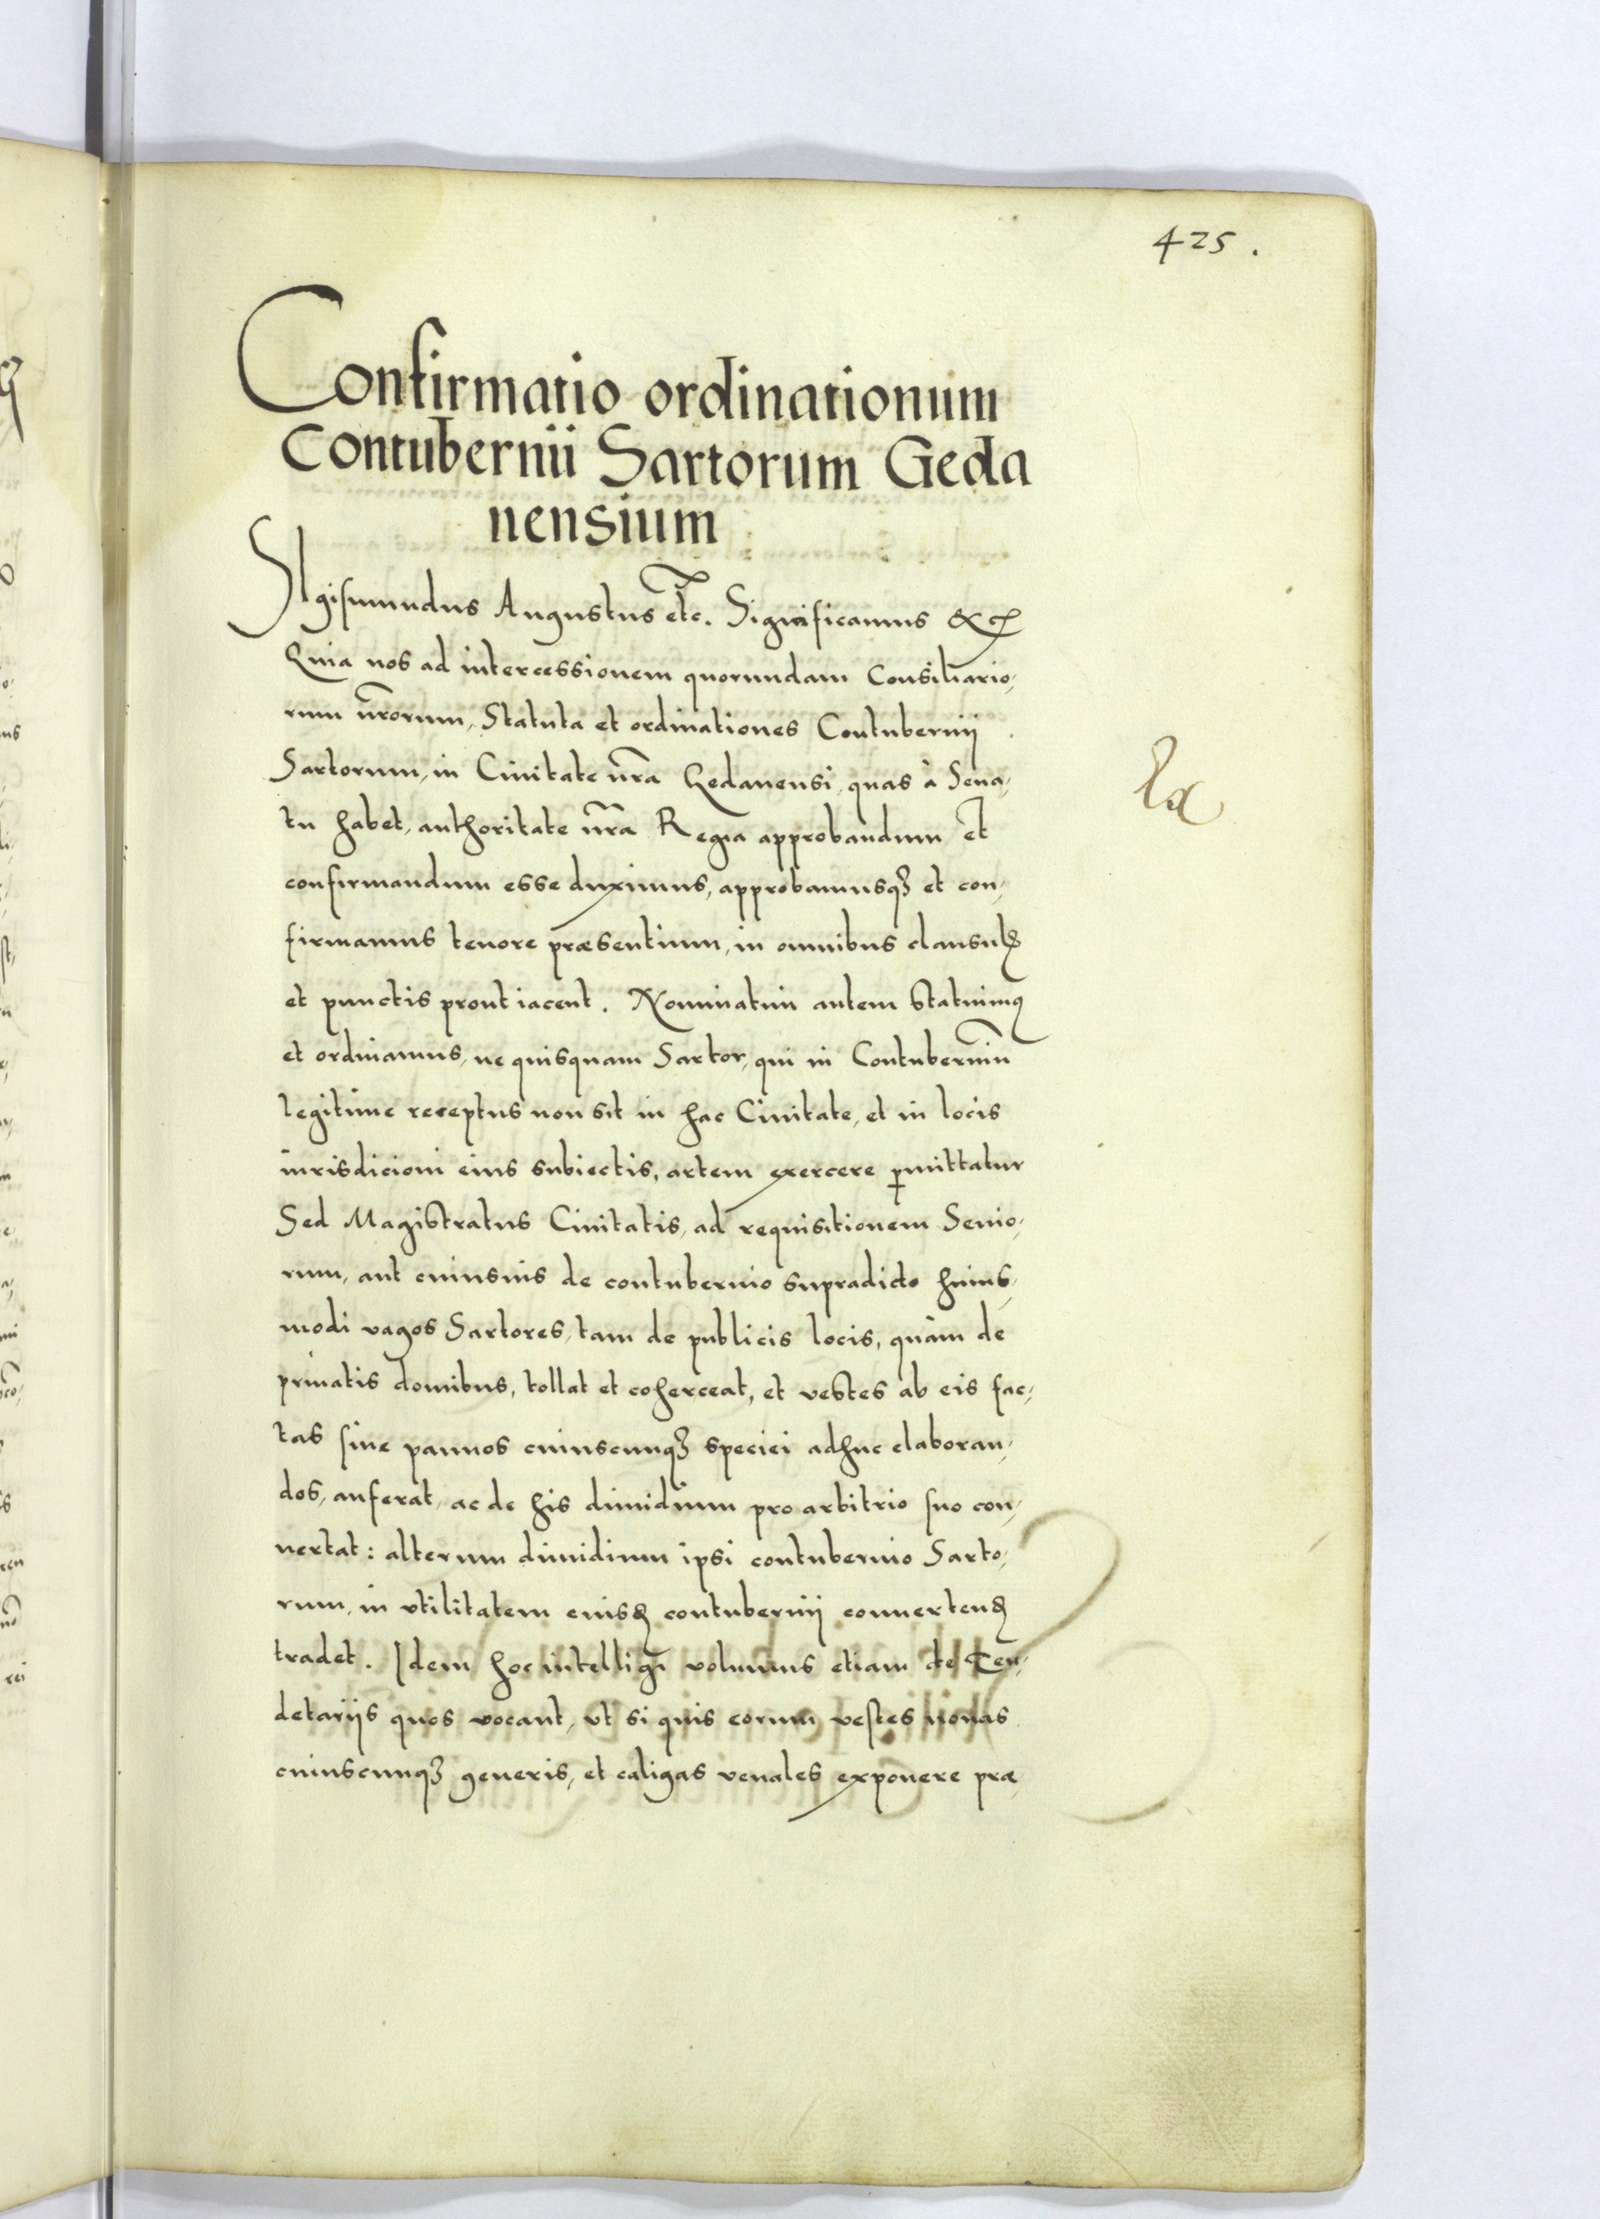 425.
Confirmatio ordinationum
Contubernii Sartorum Geda
nensium
SIgismundus Augustus etc. Significamus &c
Quia nos ad intercessionem quorundam Consiliario,
rum nr̃orum, Statuta et ordinationes Contubernij
Sartorum, in Ciuitate nr̃a Gedanensi, quas à Sena,
tu habet, authoritate nr̃a Regia approbandum et
confirmandum esse duximus, approbamusqꝫ et con,
firmamus tenore præsentium, in omnibus clausulꝭ
et punctis prout iacent. Nominatim autem statuimꝰ
et ordinamus, ne quisquam Sartor, qui in Contuberniũ
legitime receptus non sit in hac Ciuitate, et in locis
iurisdicioni eius subiectis, artem exercere ꝑmittatur
Sed Magistratus Ciuitatis, ad requisitionem Senio,
rum, aut cuiusuis de contubernio supradicto huius,
modi vagos Sartores, tam de publicis locis, quàm de
priuatis domibus, tollat et coherceat, et vestes ab eis fac,
tas siue pannos cuiuscunqꝫ speciei adhuc elaboran,
dos, auferat, ac de his dimidium pro arbitrio suo con,
uertat: alterum dimidium ipsi contubernio Sarto,
rum, in vtilitatem eiusd contubernij conuertend
tradet. Idem hoc intelligi volumus etiam de Ten,
detarijs quos vocant, vt si quis eorum vestes nouas
cuiuscunqꝫ generis, et caligas venales exponere præ,